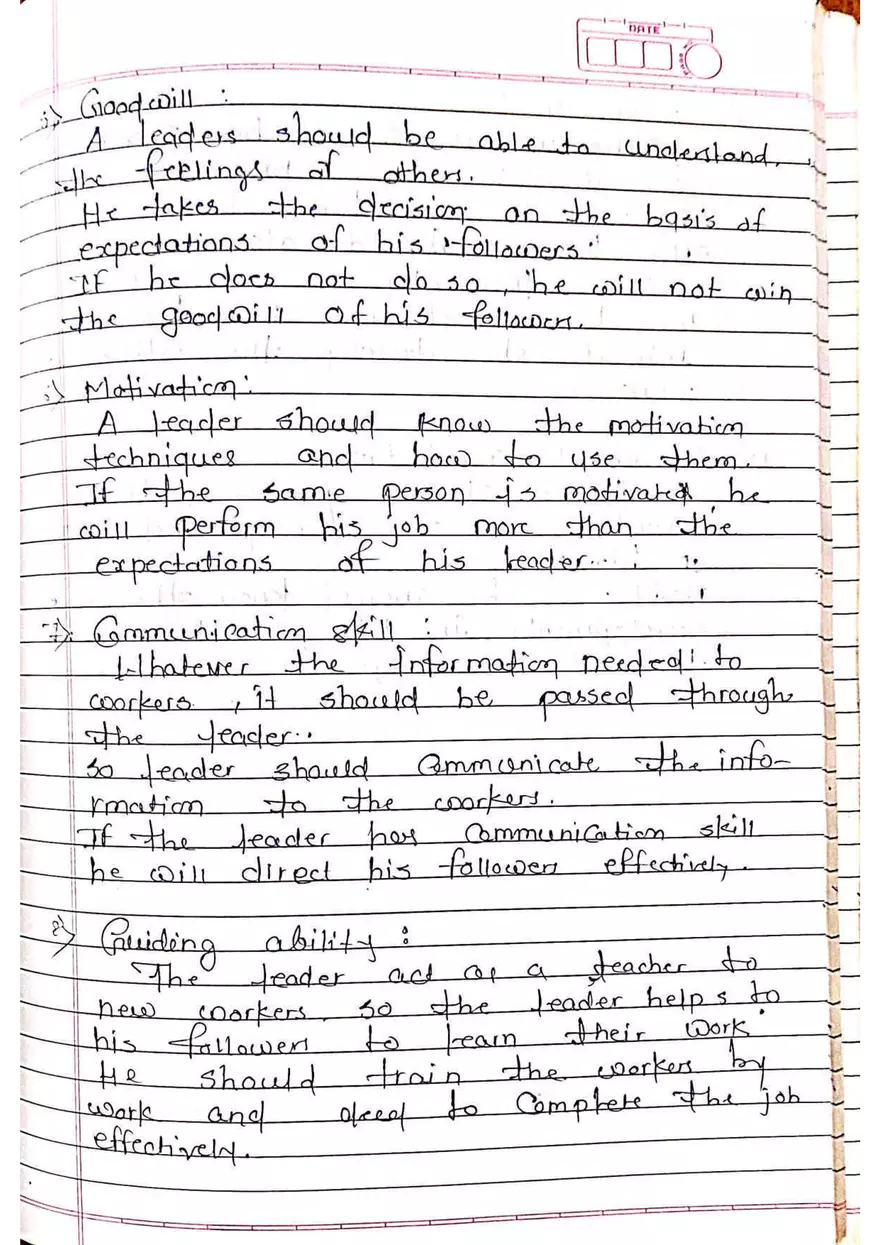 DATE
5) Goodwill :
A leaders should be able to understand
the feelings of others.
He takes the decision on the basis of
expectations of his followers.
If he does not do so, he will not win
the goodwill of his followers.
Motivation :
A leader should know the motivation
techniques and how to use them.
If the same person is motivated he
will perform his job more than the
expectations of his leader..
7) Communication skill :
Whatever the information needed to
workers, it should be passed through
the leader..
so leader should communicate the info-
rmation to the workers.
If the leader has communication skill
he will direct his followers effectively.
8) Guiding ability :
The leader act as a teacher to
new workers. so the leader helps to
his followers to learn their work.
He should train the workers by
work and deed to complete the job
effectively.